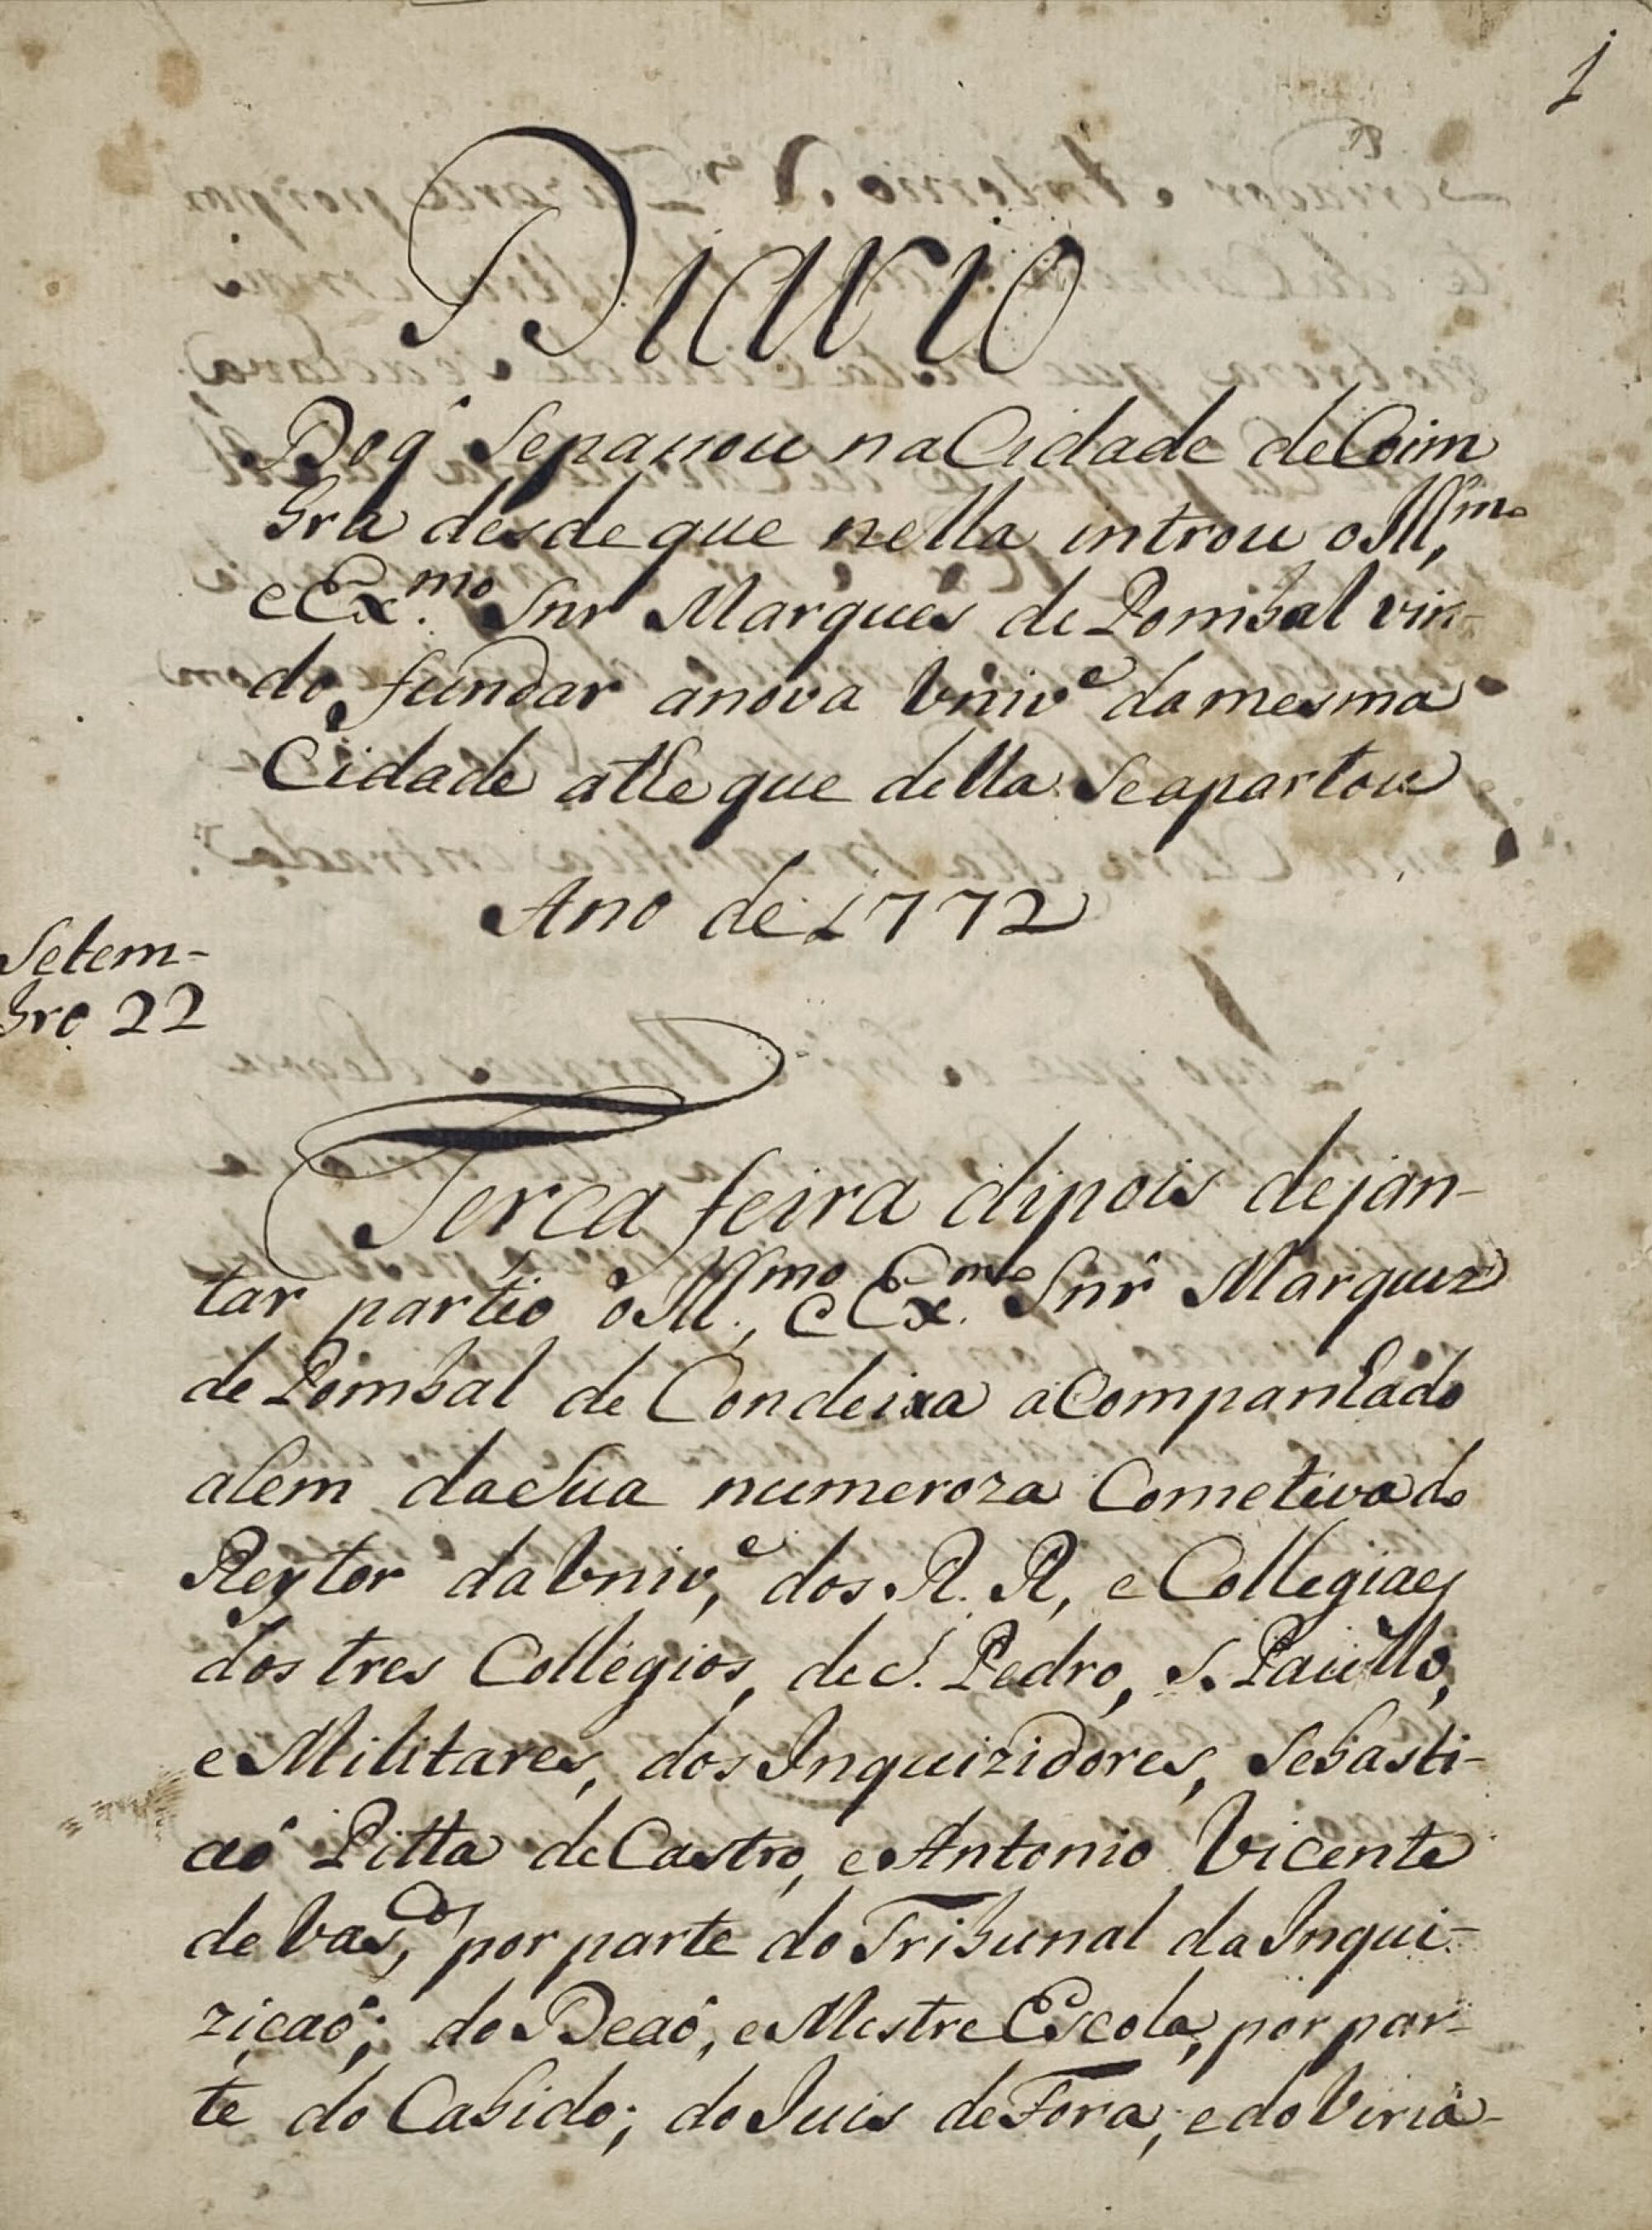 1
Diario
Do q̃ Se paçou na Cidade de Coim
bra desde que nella introu o Ill.mo
e Ex.mo Snr Marques de Pombal vin-
do fundar a nova Univ.e da mesma
Cidade athe que della Se apartou
Ano de 1772
Setem-
bro 22
Terca feira dipois de jan-
tar partio o Ill.mo, e Ex.mo Snr Marquez
de Pombal de Condeixa acompanhado
alem da Sua numeroza Cometiva do
Reytor da Univ.e, dos R. R, e Collegiaes
dos tres Collegios, de S. Pedro, S. Paullo,
e Militares, dos Inquizidores, Sebasti-
aõ Pitta de Castro, e Antonio Vicente
de Vas.cos, por parte do Tribunal da Inqui-
ziçaõ; do Deaõ, e Mestre Escola, por par-
te do Cabido; do Juis de Fora, e do Viria-